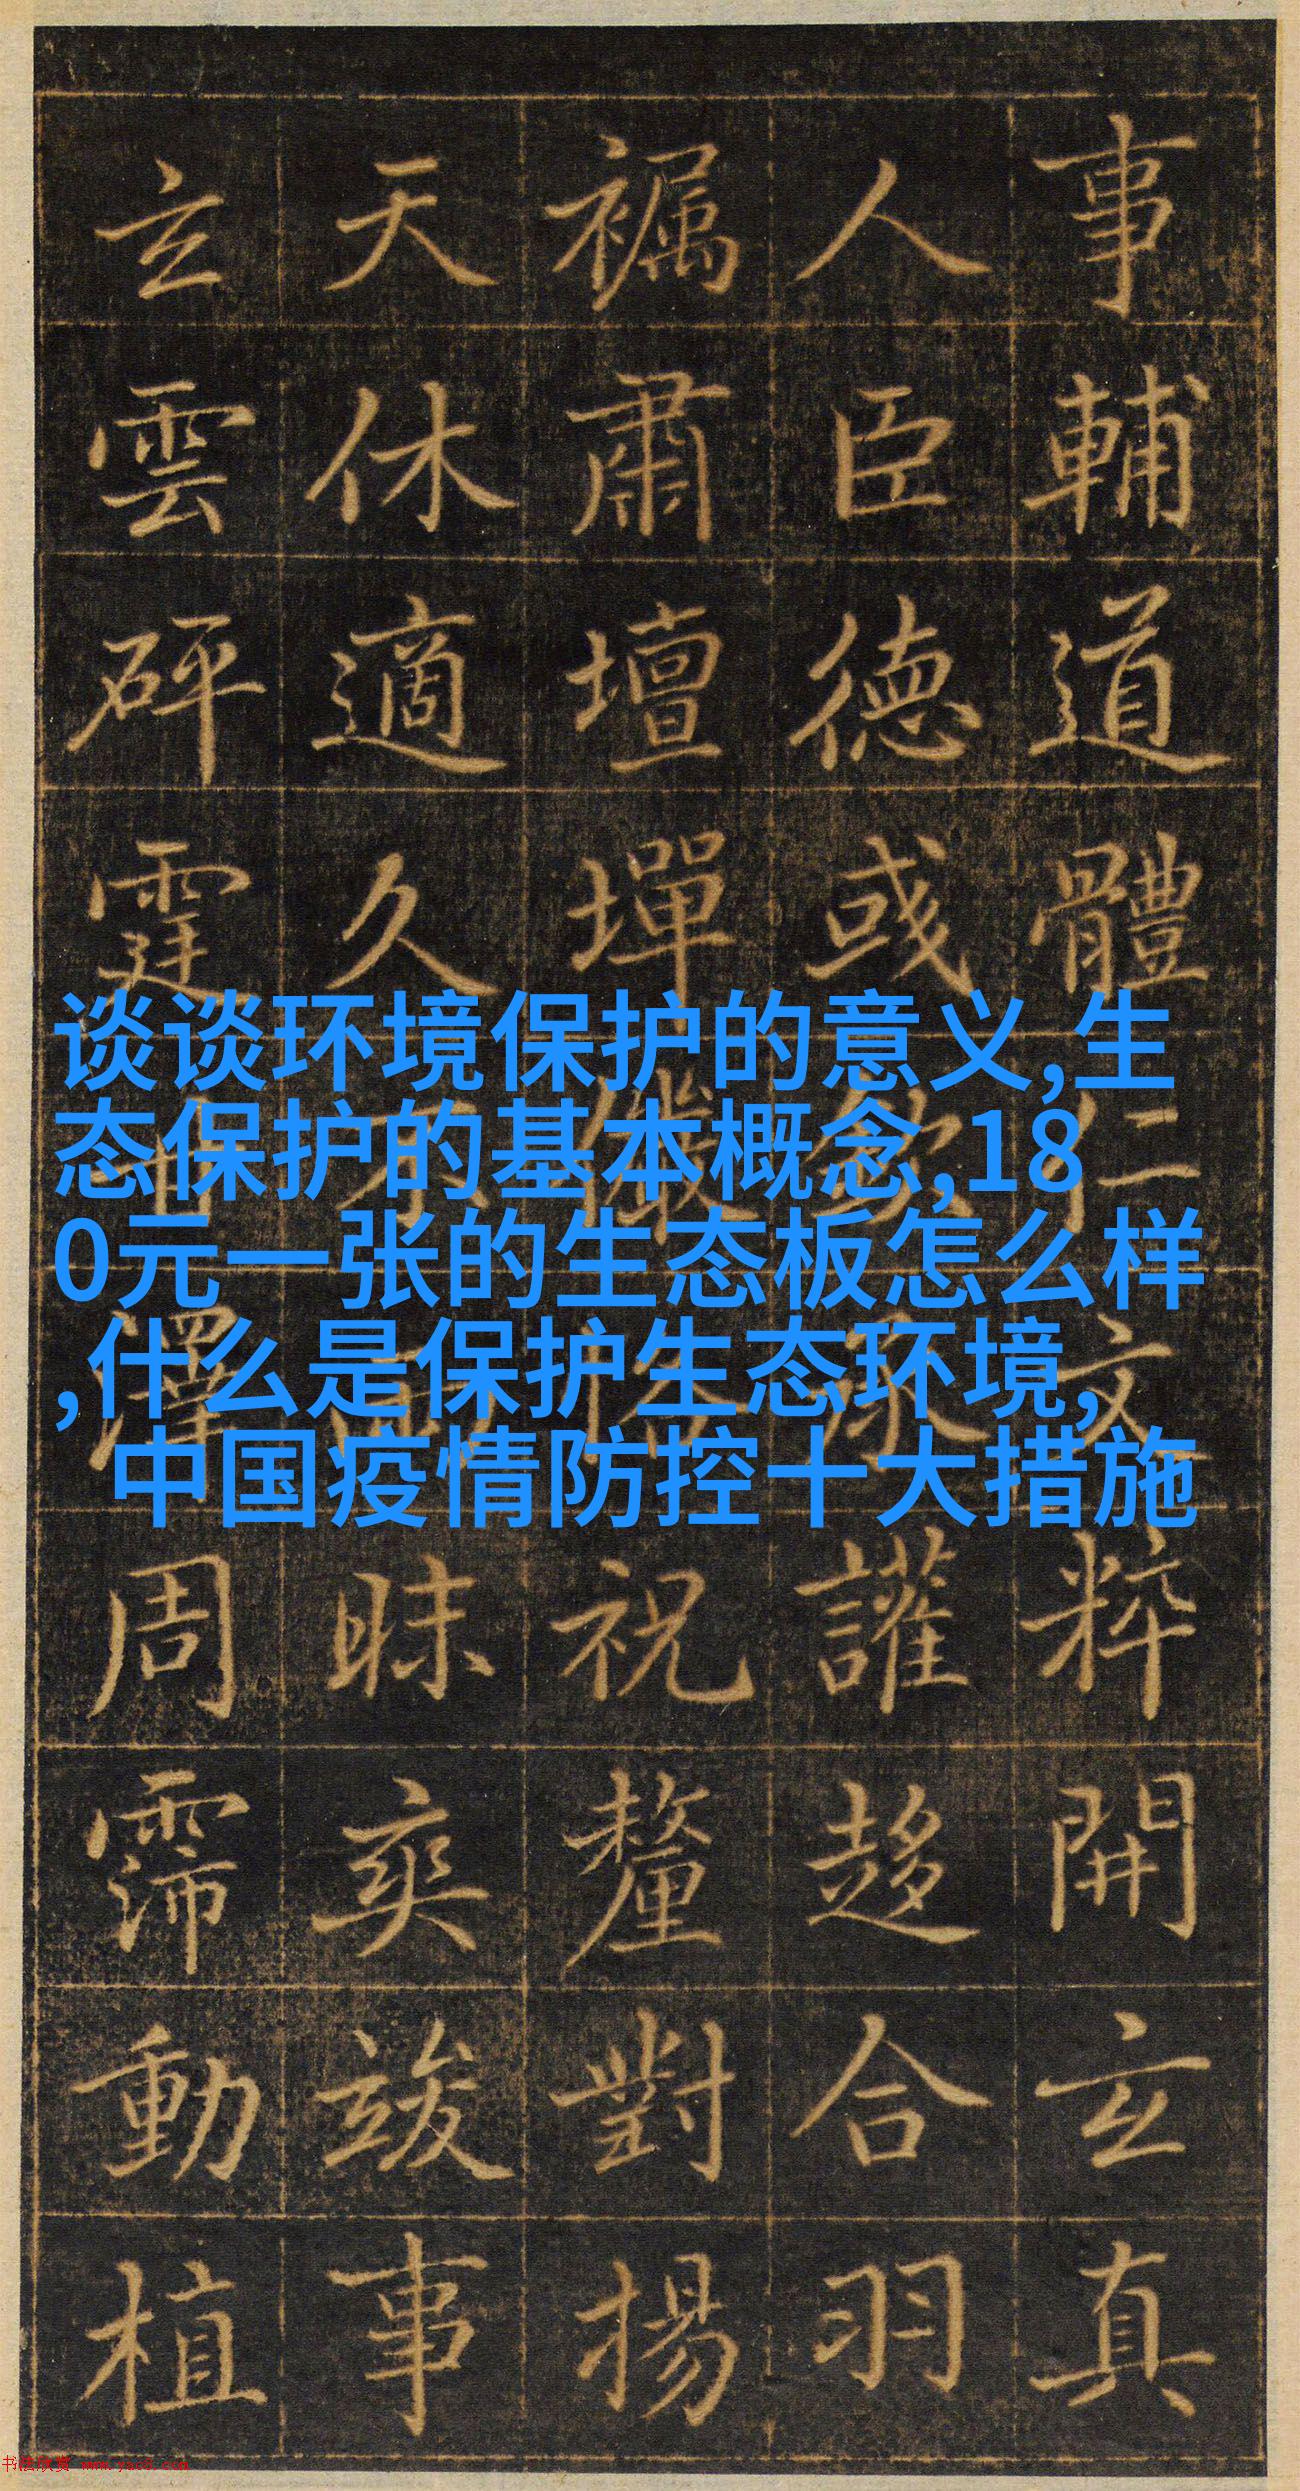 事輔道體仁文粹開玄真
人臣德或欽讙趍合羽
肅壇墠儀祝釐對揚
天休適久不昧爽竣事
玄雲砰霆澤周霈動植
谈谈环境保护的意义,生
态保护的基本概念,18
0元一张的生态板怎么样
,什么是保护生态环境,
中国疫情防控十大措施
书法欣赏 www.yac8.com